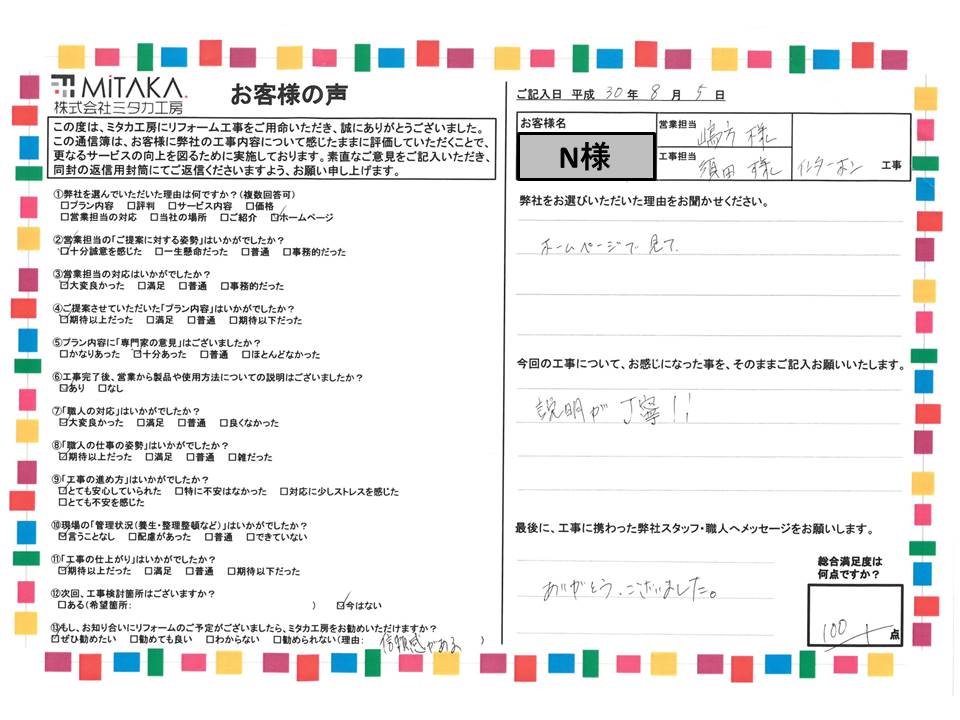 MiTAKA
株式会社ミタカ工房
お客様の声
この度は、ミタカ工房にリフォーム工事をご用命いただき、誠にありがとうございました。
この通信簿は、お客様に弊社の工事内容について感じたままに評価していただくことで、
更なるサービスの向上を図るために実施しております。素直なご意見をご記入いただき、
同封の返信用封筒にてご返信くださいますよう、お願い申し上げます。
①弊社を選んでいただいた理由は何ですか？（複数回答可）
□プラン内容 □評判 □サービス内容 □価格
□営業担当の対応 □当社の場所 □ご紹介 ☑ホームページ
②営業担当の「ご提案に対する姿勢」はいかがでしたか？
☑十分誠意を感じた □一生懸命だった □普通 □事務的だった
③営業担当の対応はいかがでしたか？
☑大変良かった □満足 □普通 □事務的だった
④ご提案させていただいた「プラン内容」はいかがでしたか？
☑期待以上だった □満足 □普通 □期待以下だった
⑤プラン内容に「専門家の意見」はございましたか？
□かなりあった ☑十分あった □普通 □ほとんどなかった
⑥工事完了後、営業から製品や使用方法についての説明はございましたか？
☑あり □なし
⑦「職人の対応」はいかがでしたか？
☑大変良かった □満足 □普通 □良くなかった
⑧「職人の仕事の姿勢」はいかがでしたか？
☑期待以上だった □満足 □普通 □雑だった
⑨「工事の進め方」はいかがでしたか？
☑とても安心していられた □特に不安はなかった □対応に少しストレスを感じた
□とても不安を感じた
⑩現場の「管理状況（養生・整理整頓など）」はいかがでしたか？
☑言うことなし □配慮があった □普通 □できていない
⑪「工事の仕上がり」はいかがでしたか？
☑期待以上だった □満足 □普通 □期待以下だった
⑫次回、工事検討箇所はございますか？
□ある（希望箇所: ） ☑今はない
⑬もし、お知り合いにリフォームのご予定がございましたら、ミタカ工房をお勧めいただけますか？
☑ぜひ勧めたい □勧めても良い □わからない □勧められない（理由: 信頼感がある ）
ご記入日 平成 30 年 8 月 5 日
お客様名
N様
営業担当 嶋方 様
工事担当 須田 様
インターホン 工事
弊社をお選びいただいた理由をお聞かせください。
ホームページで見て。
今回の工事について、お感じになった事を、そのままご記入お願いいたします。
説明が丁寧！！
最後に、工事に携わった弊社スタッフ・職人へメッセージをお願いします。
ありがとうございました。
総合満足度は
何点ですか？
100 点